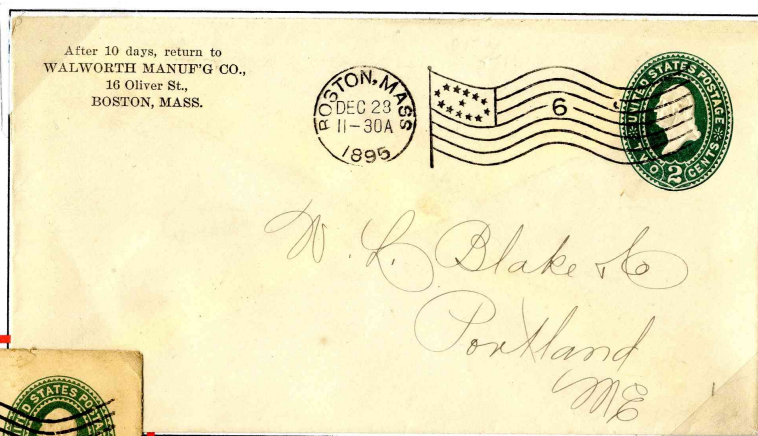 After 10 days, return to
WALWORTH MANUF'G CO.,
16 Oliver St.,
BOSTON, MASS.
BOSTON, MASS
DEC 28
11-30A
1895
6
UNITED STATES POSTAGE
TWO 2 CENTS
W. L. Blake & Co
Portland
ME
STATES